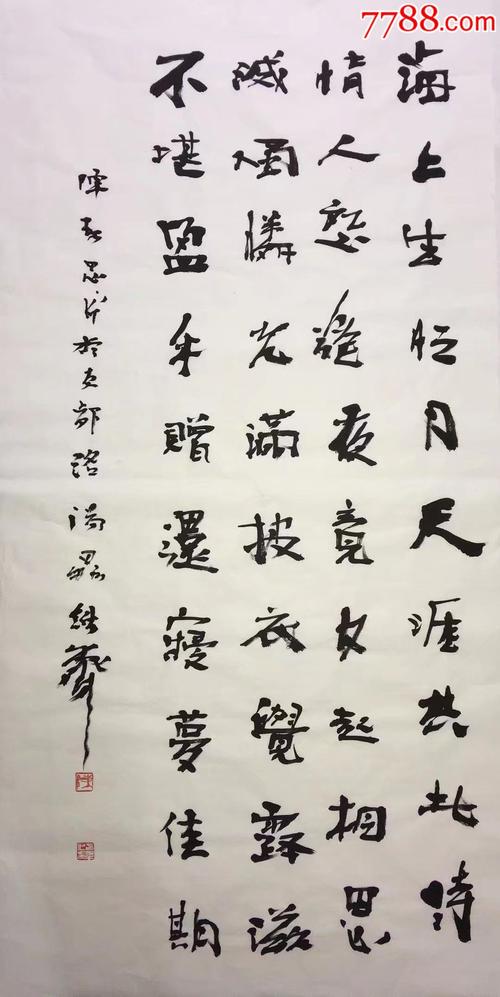 7788.com
海上生明月天涯共此時
情人怨遙夜竟夕起相思
滅燭憐光滿披衣覺露滋
不堪盈手贈還寢夢佳期
於京都